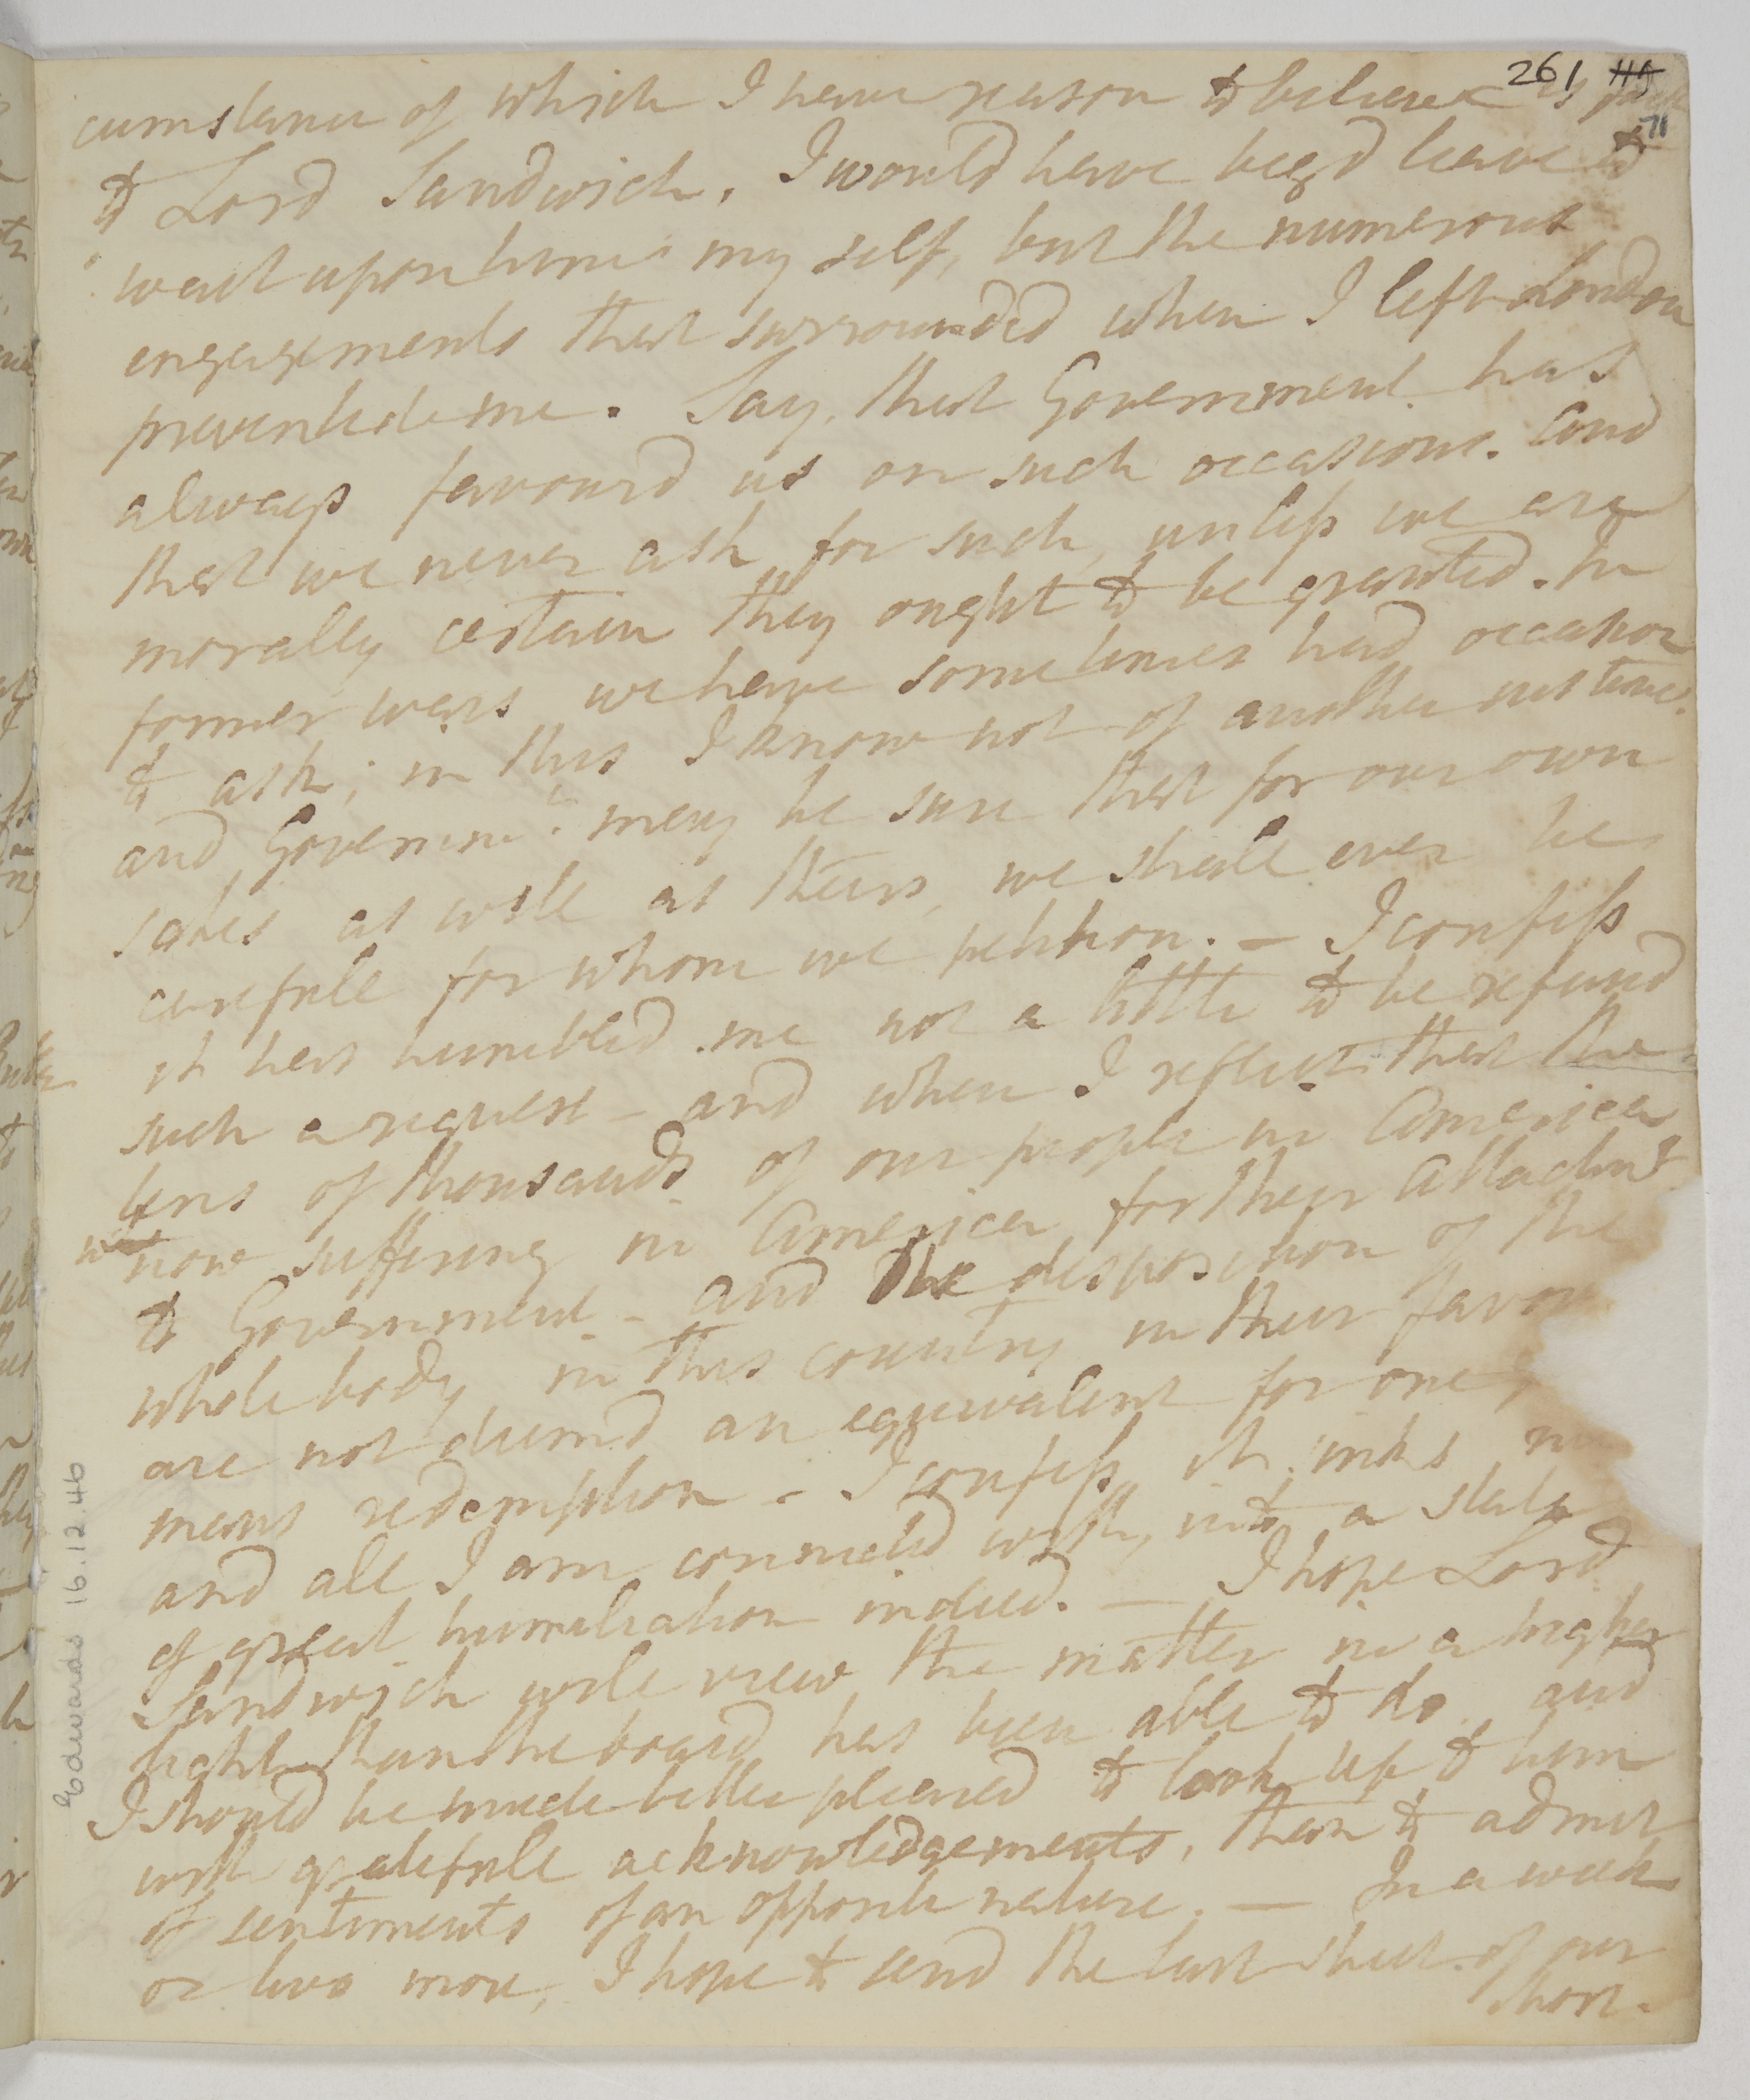 261
71
cumstance of which I have reason to believe is
to Lord Sandwich. I would have beg'd leave to
wait upon him my self, but the numerous
engagements that surrounded when I left London
prevented me. Say, that Government has
always favour'd us on such occasions. And
that we never ask for such, unless we are
morally certain they ought to be granted. In
former wars we have sometimes had occasion
to ask; in this I know not of another instance.
and Governmt. may be sure that for our own
sakes as well as theirs, we shall ever be
carefull for whom we petition. — I confess
it has humbled me not a little to be refused
such a request — and when I reflect that the
tens of thousands of our people in America
now suffering in America for their attachmt
to Government — and the disposition of the
whole body in this country in their favou
are not deem'd an equivalent for one
mans redemption — I confess it sinks
and all I am connected with, into a state
of great humiliation indeed. — I hope Lord
Sandwich will view the matter in a higher
light than the board has been able to do and
I should be much better pleased to look up to him
with gratefull acknowledgements, than to admit
of sentiments of an opposite nature. — In a week
or two more, I hope to send the last sheet of our
short.
Edwards 16.12.46